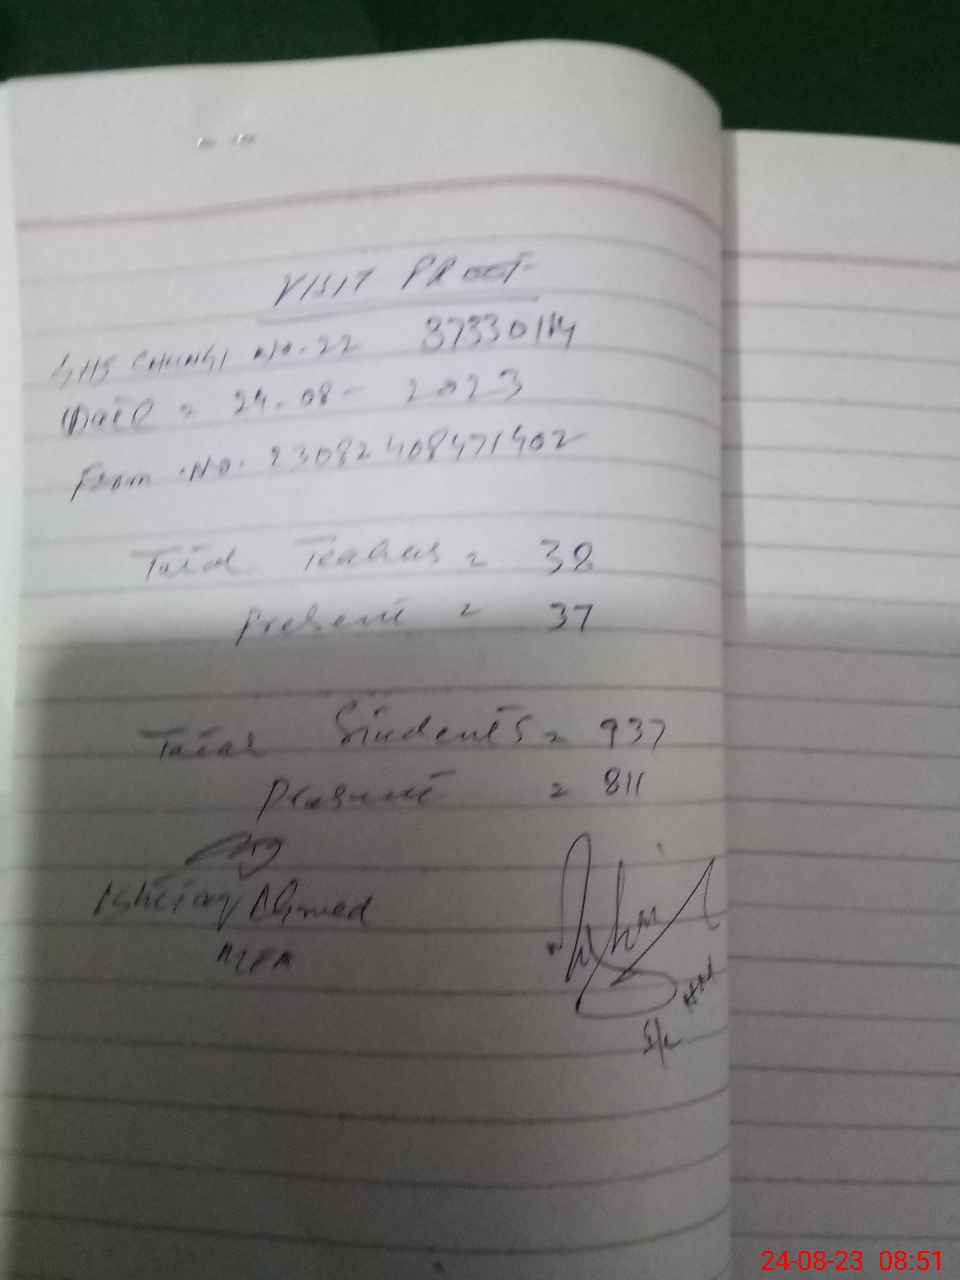 VISIT PROOF
GHS CHUNGI NO. 22 37330114
Date = 24-08-2023
Form No. 23082408471402
Total Teachers = 38
Present = 37
Total Students = 937
Present = 811
Ishtiaq Ahmed
MEA
I/c HM
24-08-23 08:51